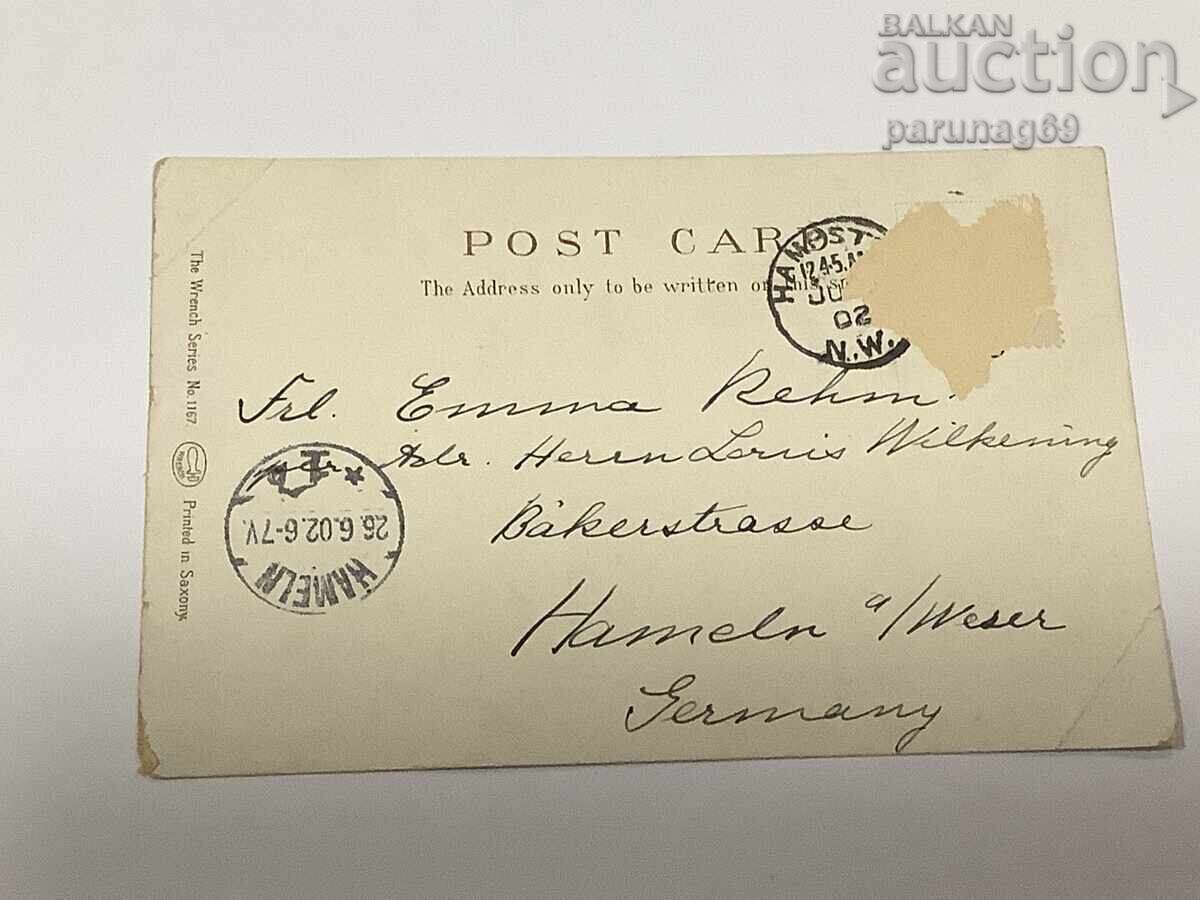 BALKAN
auction
parunag69
POST CAR
The Address only to be written on this
HAMPST
12.45.AM
JU
02
N.W.
Frl. Emma Rehm
per Adr. Herrn Louis Wilkening
Bäkerstrasse
Hameln a/Weser
Germany
HAMELN
26.6.02.6-7V.
The Wrench Series No. 1167.
Printed in Saxony.